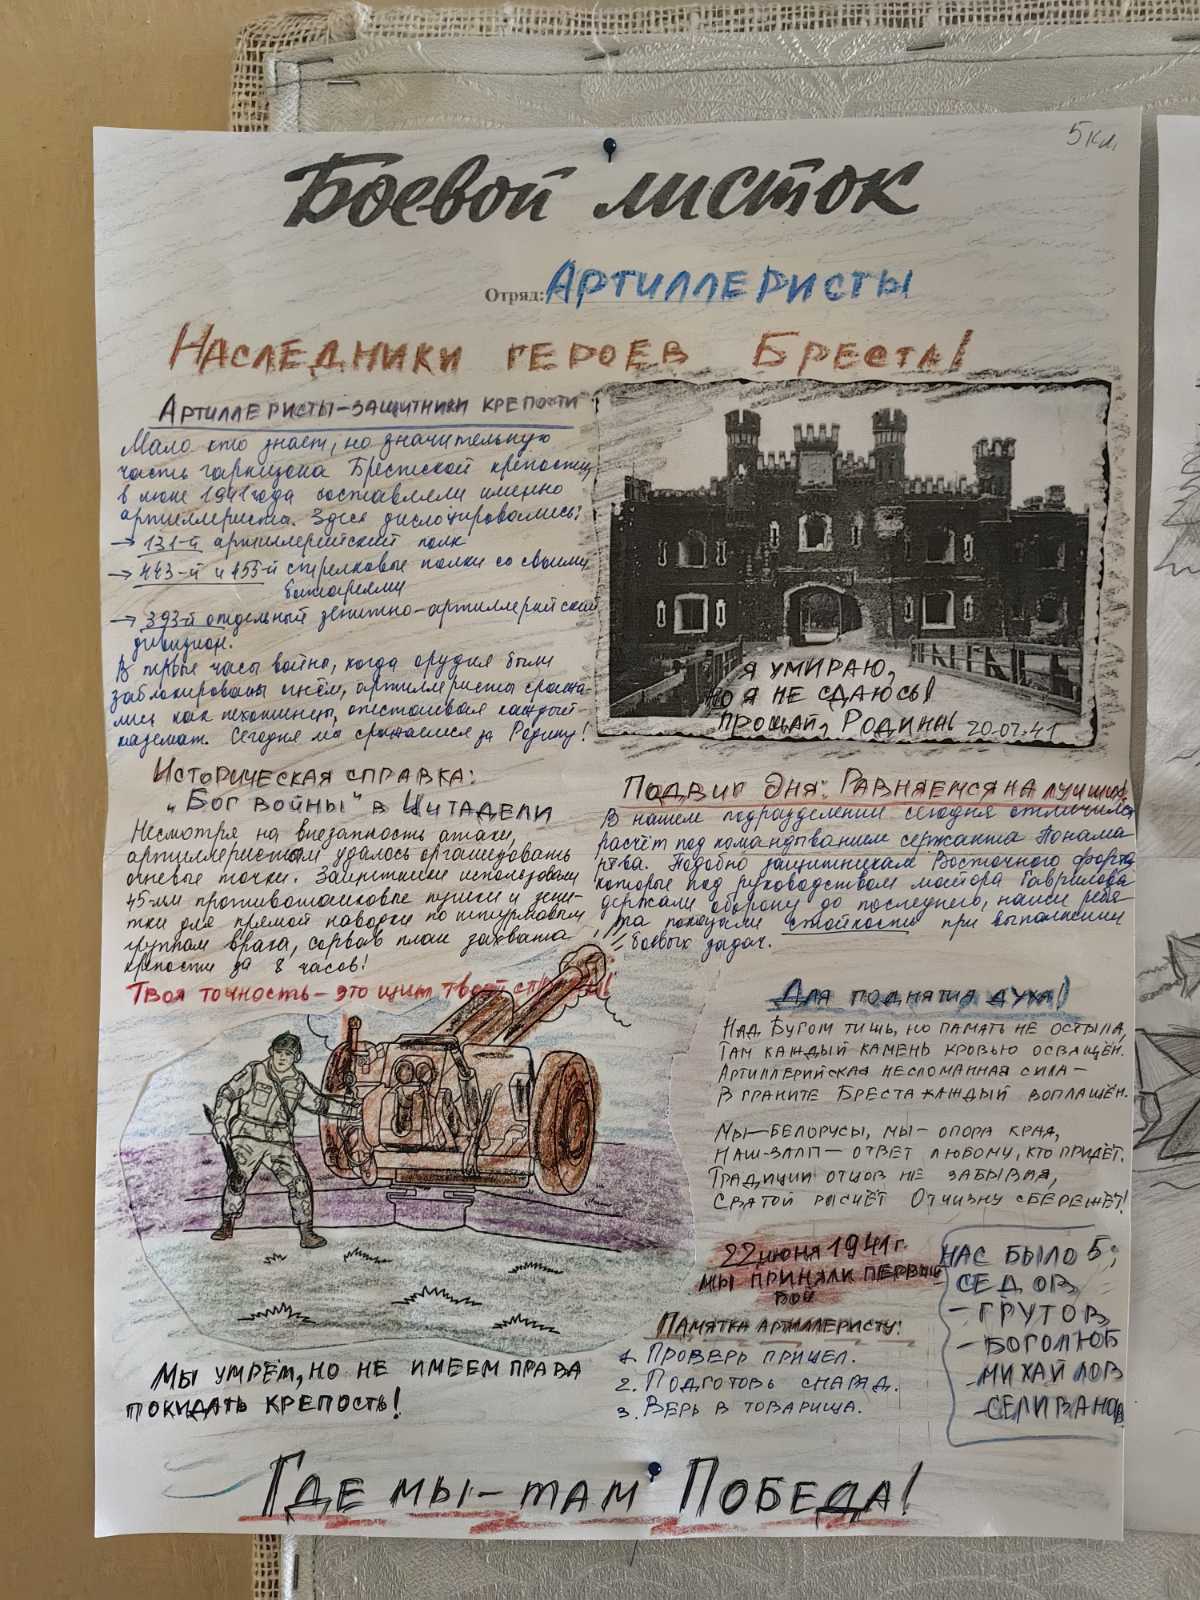 5 кл.
Боевой листок
Отряд: Артиллеристы
Наследники героев Бреста!
Артиллеристы-защитники крепости
Мало кто знает, но значительную
часть гарнизона Брестской крепости
в июне 1941 года составляли именно
артиллеристы. Здесь дислоцировались:
→ 131-й артиллерийский полк
→ 443-й и 455-й стрелковые полки со своими
батареями
→ 393-й отдельный зенитно-артиллерийский
дивизион.
В первые часы войны, когда орудия были
заблокированы огнём, артиллеристы сража-
лись как пехотинцы, отстаивая каждый
каземат. Сегодня мы сражаемся за Родину!
Я умираю,
но я не сдаюсь!
Прощай, Родина!
20.07.41
Историческая справка:
"Бог войны" в Цитадели
Несмотря на внезапность атаки,
артиллеристам удалось организовать
огневые точки. Защитники использовали
45-мм противотанковые пушки и зени-
тки для прямой наводки по штурмовым
группам врага, сорвав план захвата
крепости за 8 часов!
Твоя точность - это щит твоей
Подвиг дня: Равняемся на лучших!
В нашем подразделении сегодня отличился
расчёт под командыванием сержанта Понама
рёва. Подобно защитникам Восточного форта,
которые под руководством майора Гаврилова
держали оборону до последнего, наши ребя-
та показали стойкость при выполнении
боевых задач.
Для поднятия духа!
Над Бугом тишь, но память не остыла,
Там каждый камень кровью освящён.
Артиллерийская несломанная сила —
В граните Бреста каждый воплащён.
Мы — белорусы, мы - опора края,
Наш-залп — ответ любому, кто придёт.
Традиции отцов не забывая,
Святой расчёт Отчизну сбережёт!
22 июня 1941 г.
мы приняли первый
бой
Нас было 5:
- Седов
- Грутов
- Боголюб
- Михайлов
- Селиванов
Памятка артиллеристу:
1. Проверь прицел.
2. Подготовь снаряд.
3. Верь в товарища.
Мы умрём, но не имеем права
покидать крепость!
Где мы - там Победа!